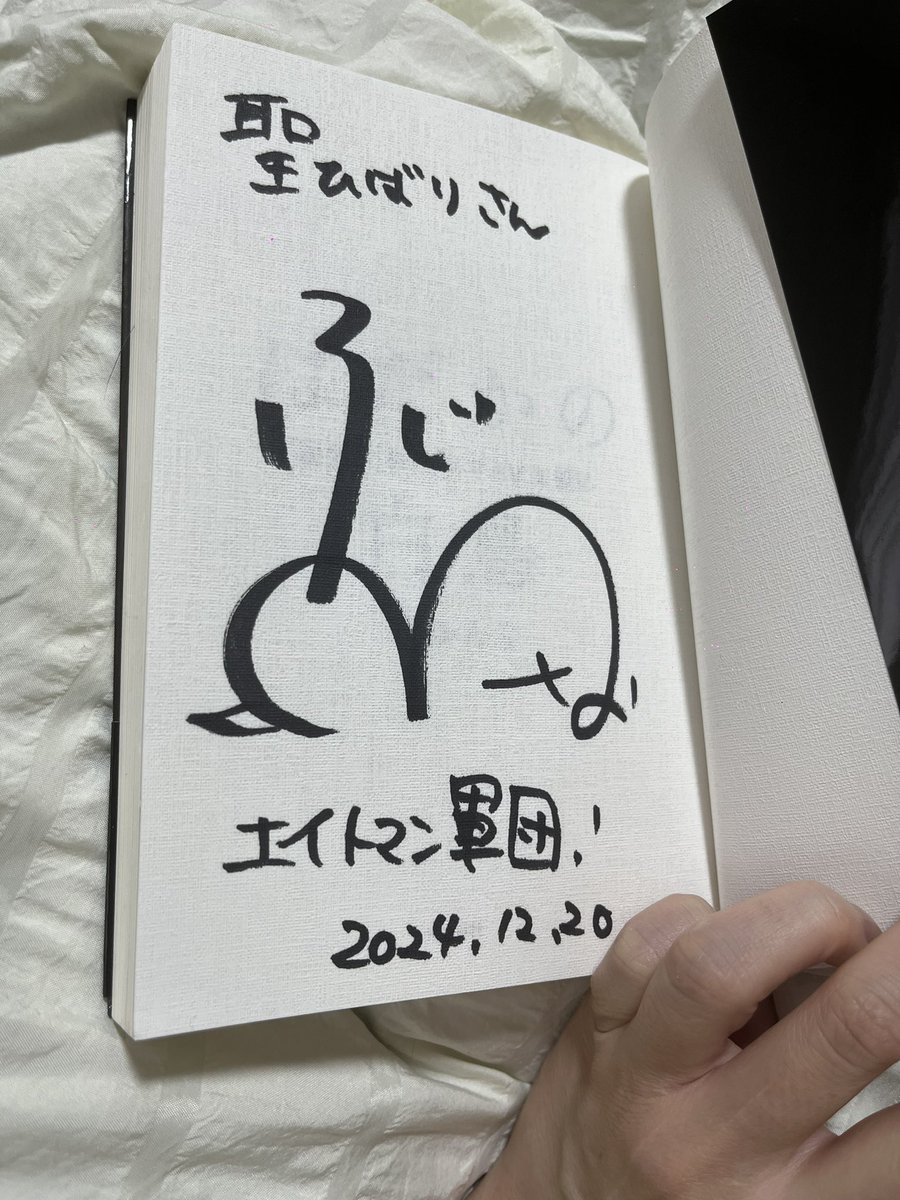 聖ひばりさん
ふじ
な
エイトマン軍団!
2024.12.20